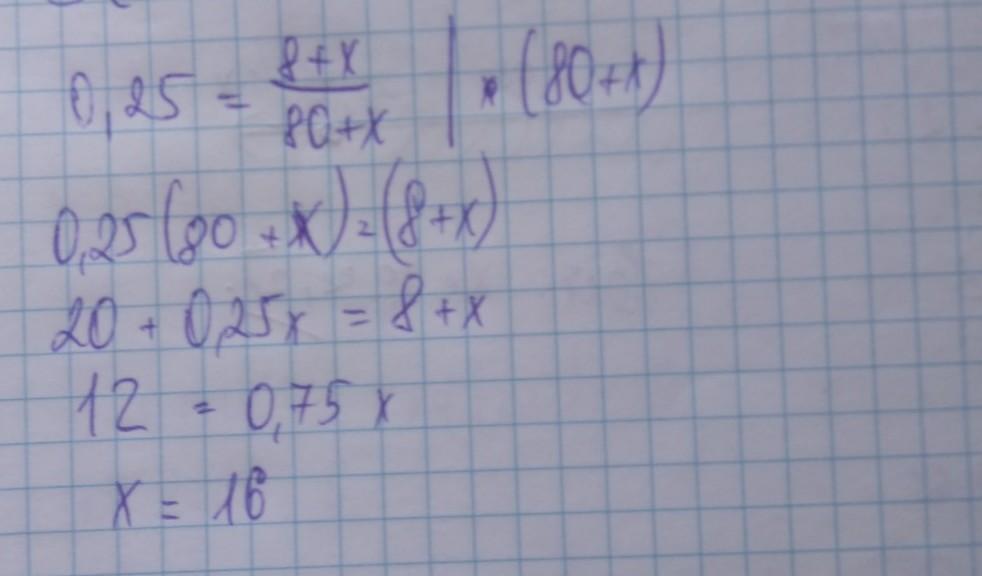 0,25 = \frac{8+x}{80+x} | · (80+x)
0,25(80 + x) = (8+x)
20 + 0,25x = 8 + x
12 = 0,75 x
x = 16